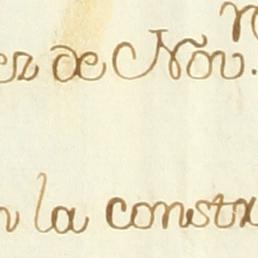 ez de Nov.
n la constr